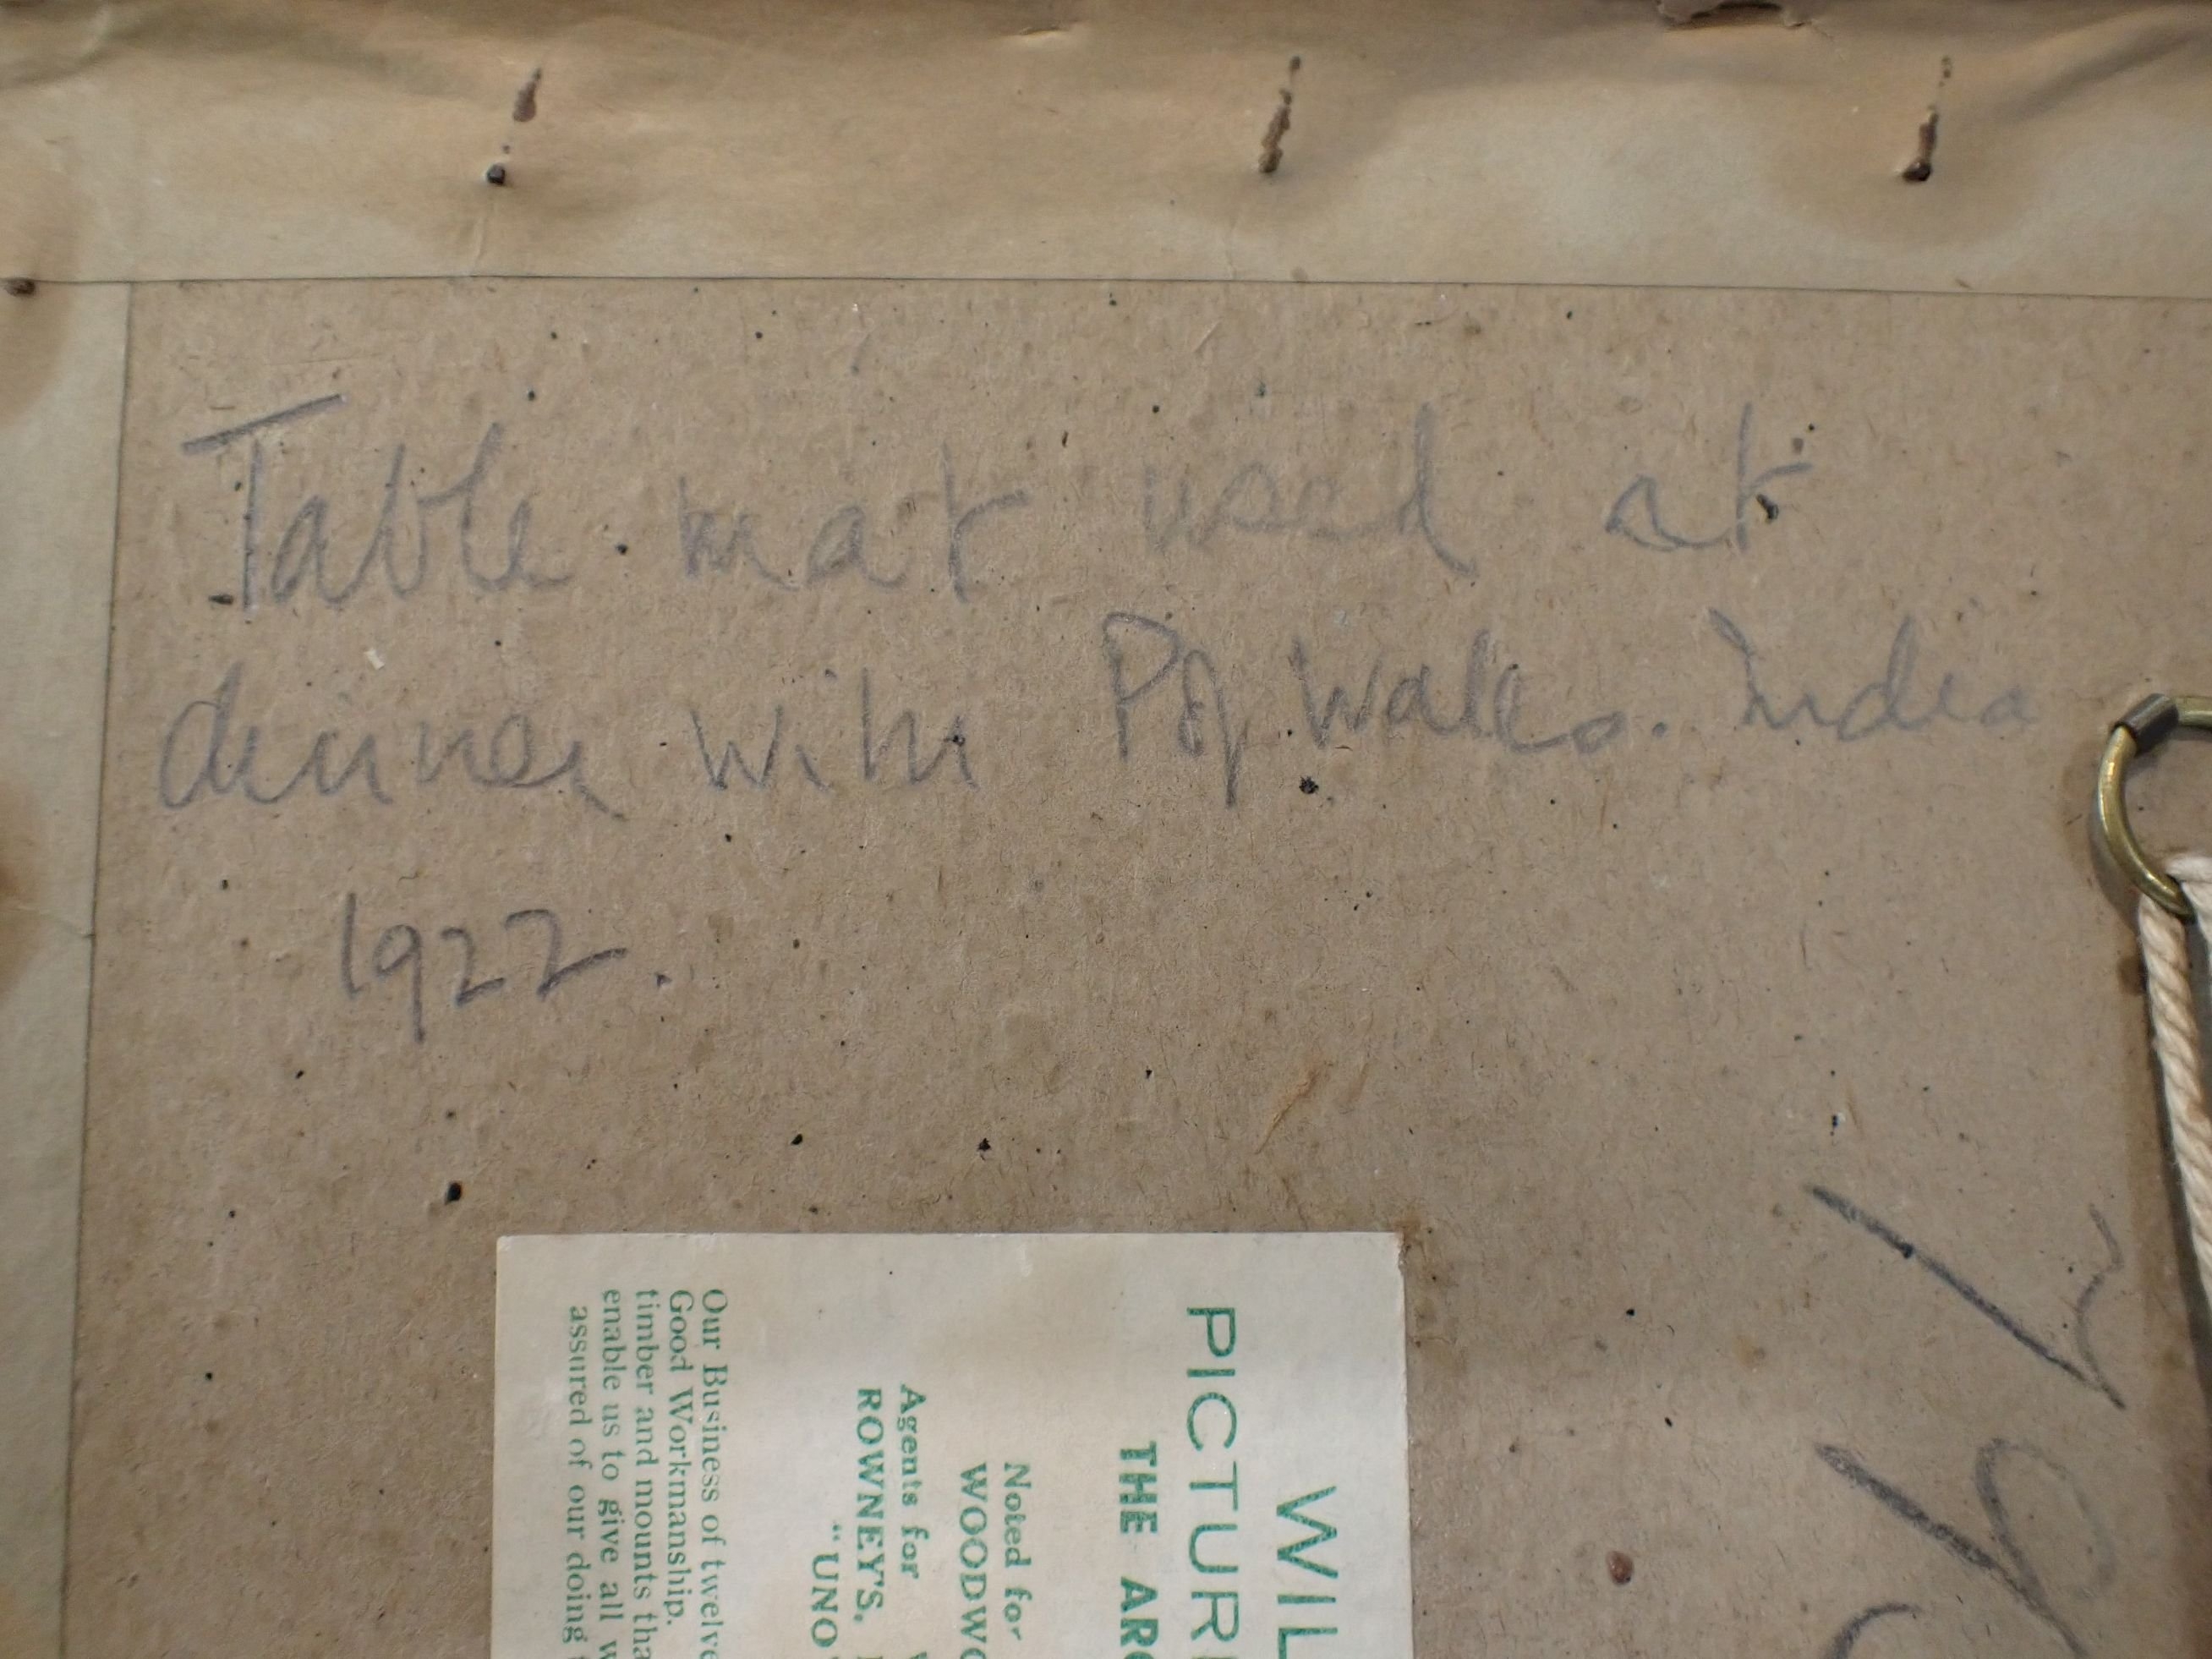 Table mat used at
dinner with P of Wales. India
1922.
WIL
PICTUR
THE AR
Noted for
WOODW
Agents for
ROWNEY'S,
"UNO
Our Business of twelve
Good Workmanship.
timber and mounts tha
enable us to give all w
assured of our doing